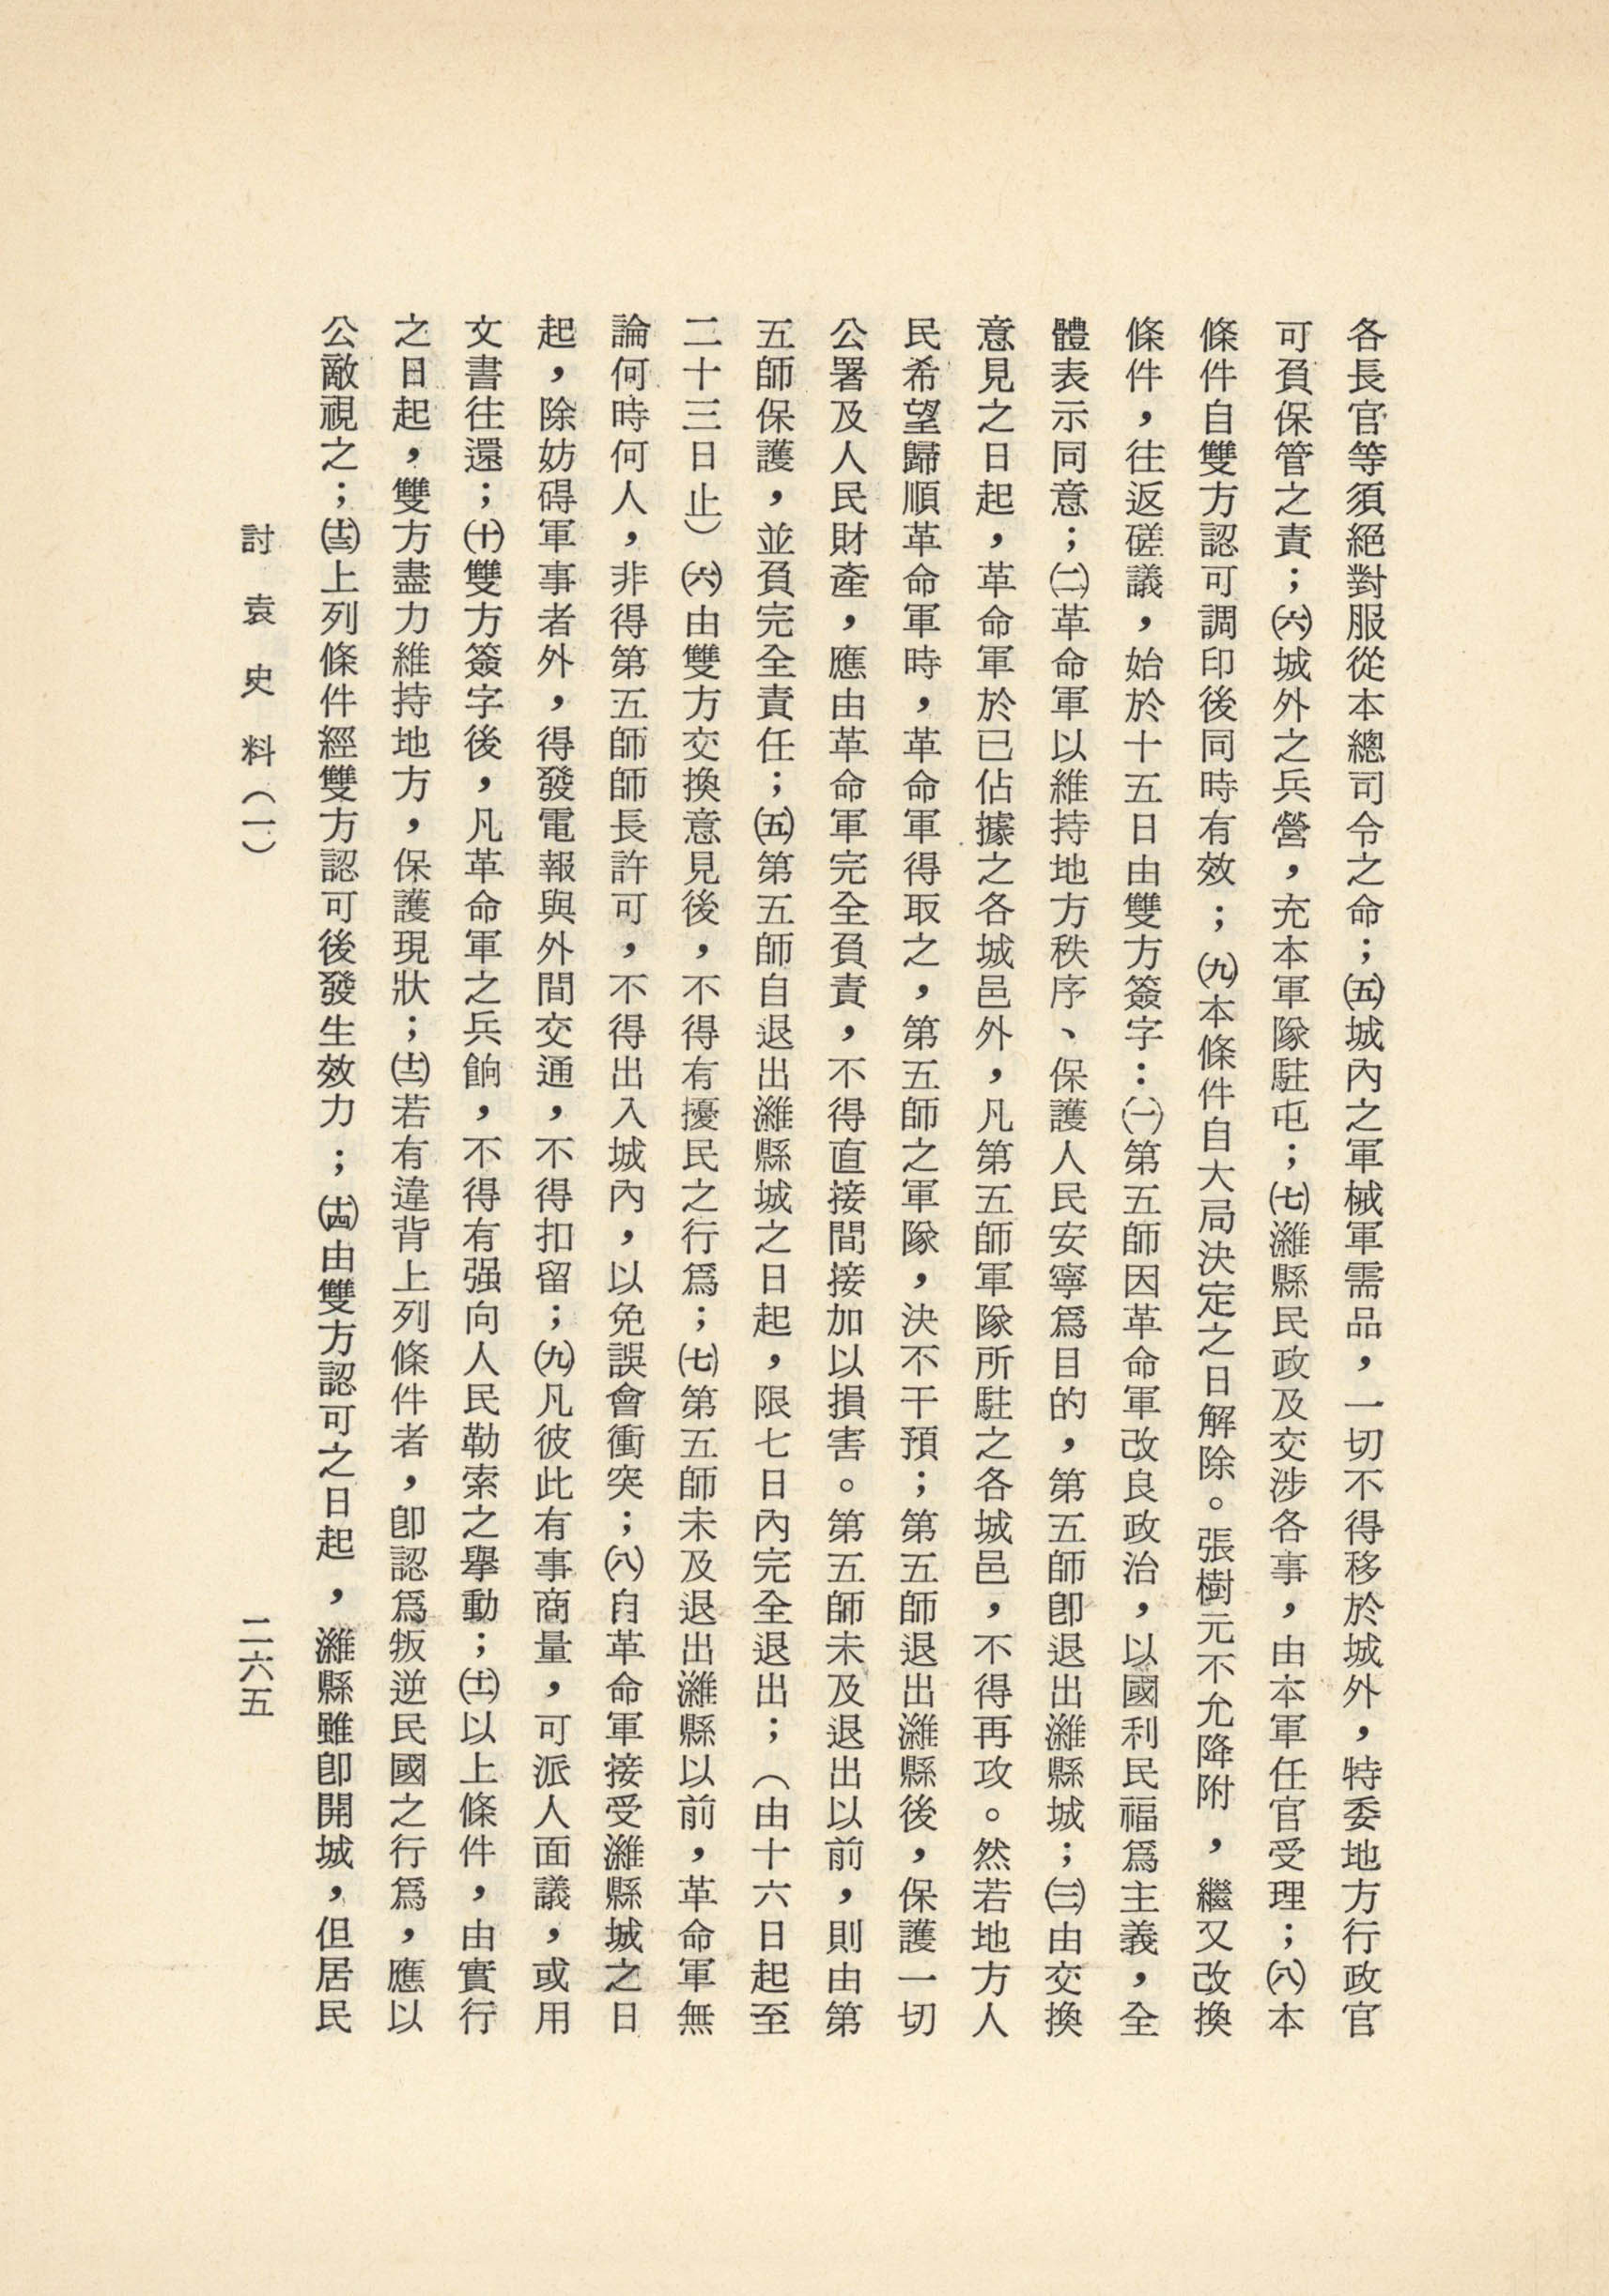 各長官等須絕對服從本總司令之命；㈤城內之軍械軍需品，一切不得移於城外，特委地方行政官
可負保管之責；㈥城外之兵營，充本軍隊駐屯；㈦濰縣民政及交涉各事，由本軍任官受理；㈧本
條件自雙方認可調印後同時有效；㈨本條件自大局決定之日解除。張樹元不允降附，繼又改換
條件，往返磋議，始於十五日由雙方簽字：㈠第五師因革命軍改良政治，以國利民福爲主義，全
體表示同意；㈡革命軍以維持地方秩序、保護人民安寧爲目的，第五師卽退出濰縣城；㈢由交換
意見之日起，革命軍於已佔據之各城邑外，凡第五師軍隊所駐之各城邑，不得再攻。然若地方人
民希望歸順革命軍時，革命軍得取之，第五師之軍隊，決不干預；第五師退出濰縣後，保護一切
公署及人民財產，應由革命軍完全負責，不得直接間接加以損害。第五師未及退出以前，則由第
五師保護，並負完全責任；㈤第五師自退出濰縣城之日起，限七日內完全退出；（由十六日起至
二十三日止）㈥由雙方交換意見後，不得有擾民之行爲；㈦第五師未及退出濰縣以前，革命軍無
論何時何人，非得第五師師長許可，不得出入城內，以免誤會衝突；㈧自革命軍接受濰縣城之日
起，除妨碍軍事者外，得發電報與外間交通，不得扣留；㈨凡彼此有事商量，可派人面議，或用
文書往還；㈩雙方簽字後，凡革命軍之兵餉，不得有强向人民勒索之舉動；(十一)以上條件，由實行
之日起，雙方盡力維持地方，保護現狀；(十二)若有違背上列條件者，卽認爲叛逆民國之行爲，應以
公敵視之；(十三)上列條件經雙方認可後發生效力；(十四)由雙方認可之日起，濰縣雖卽開城，但居民
討袁史料（一）
二六五